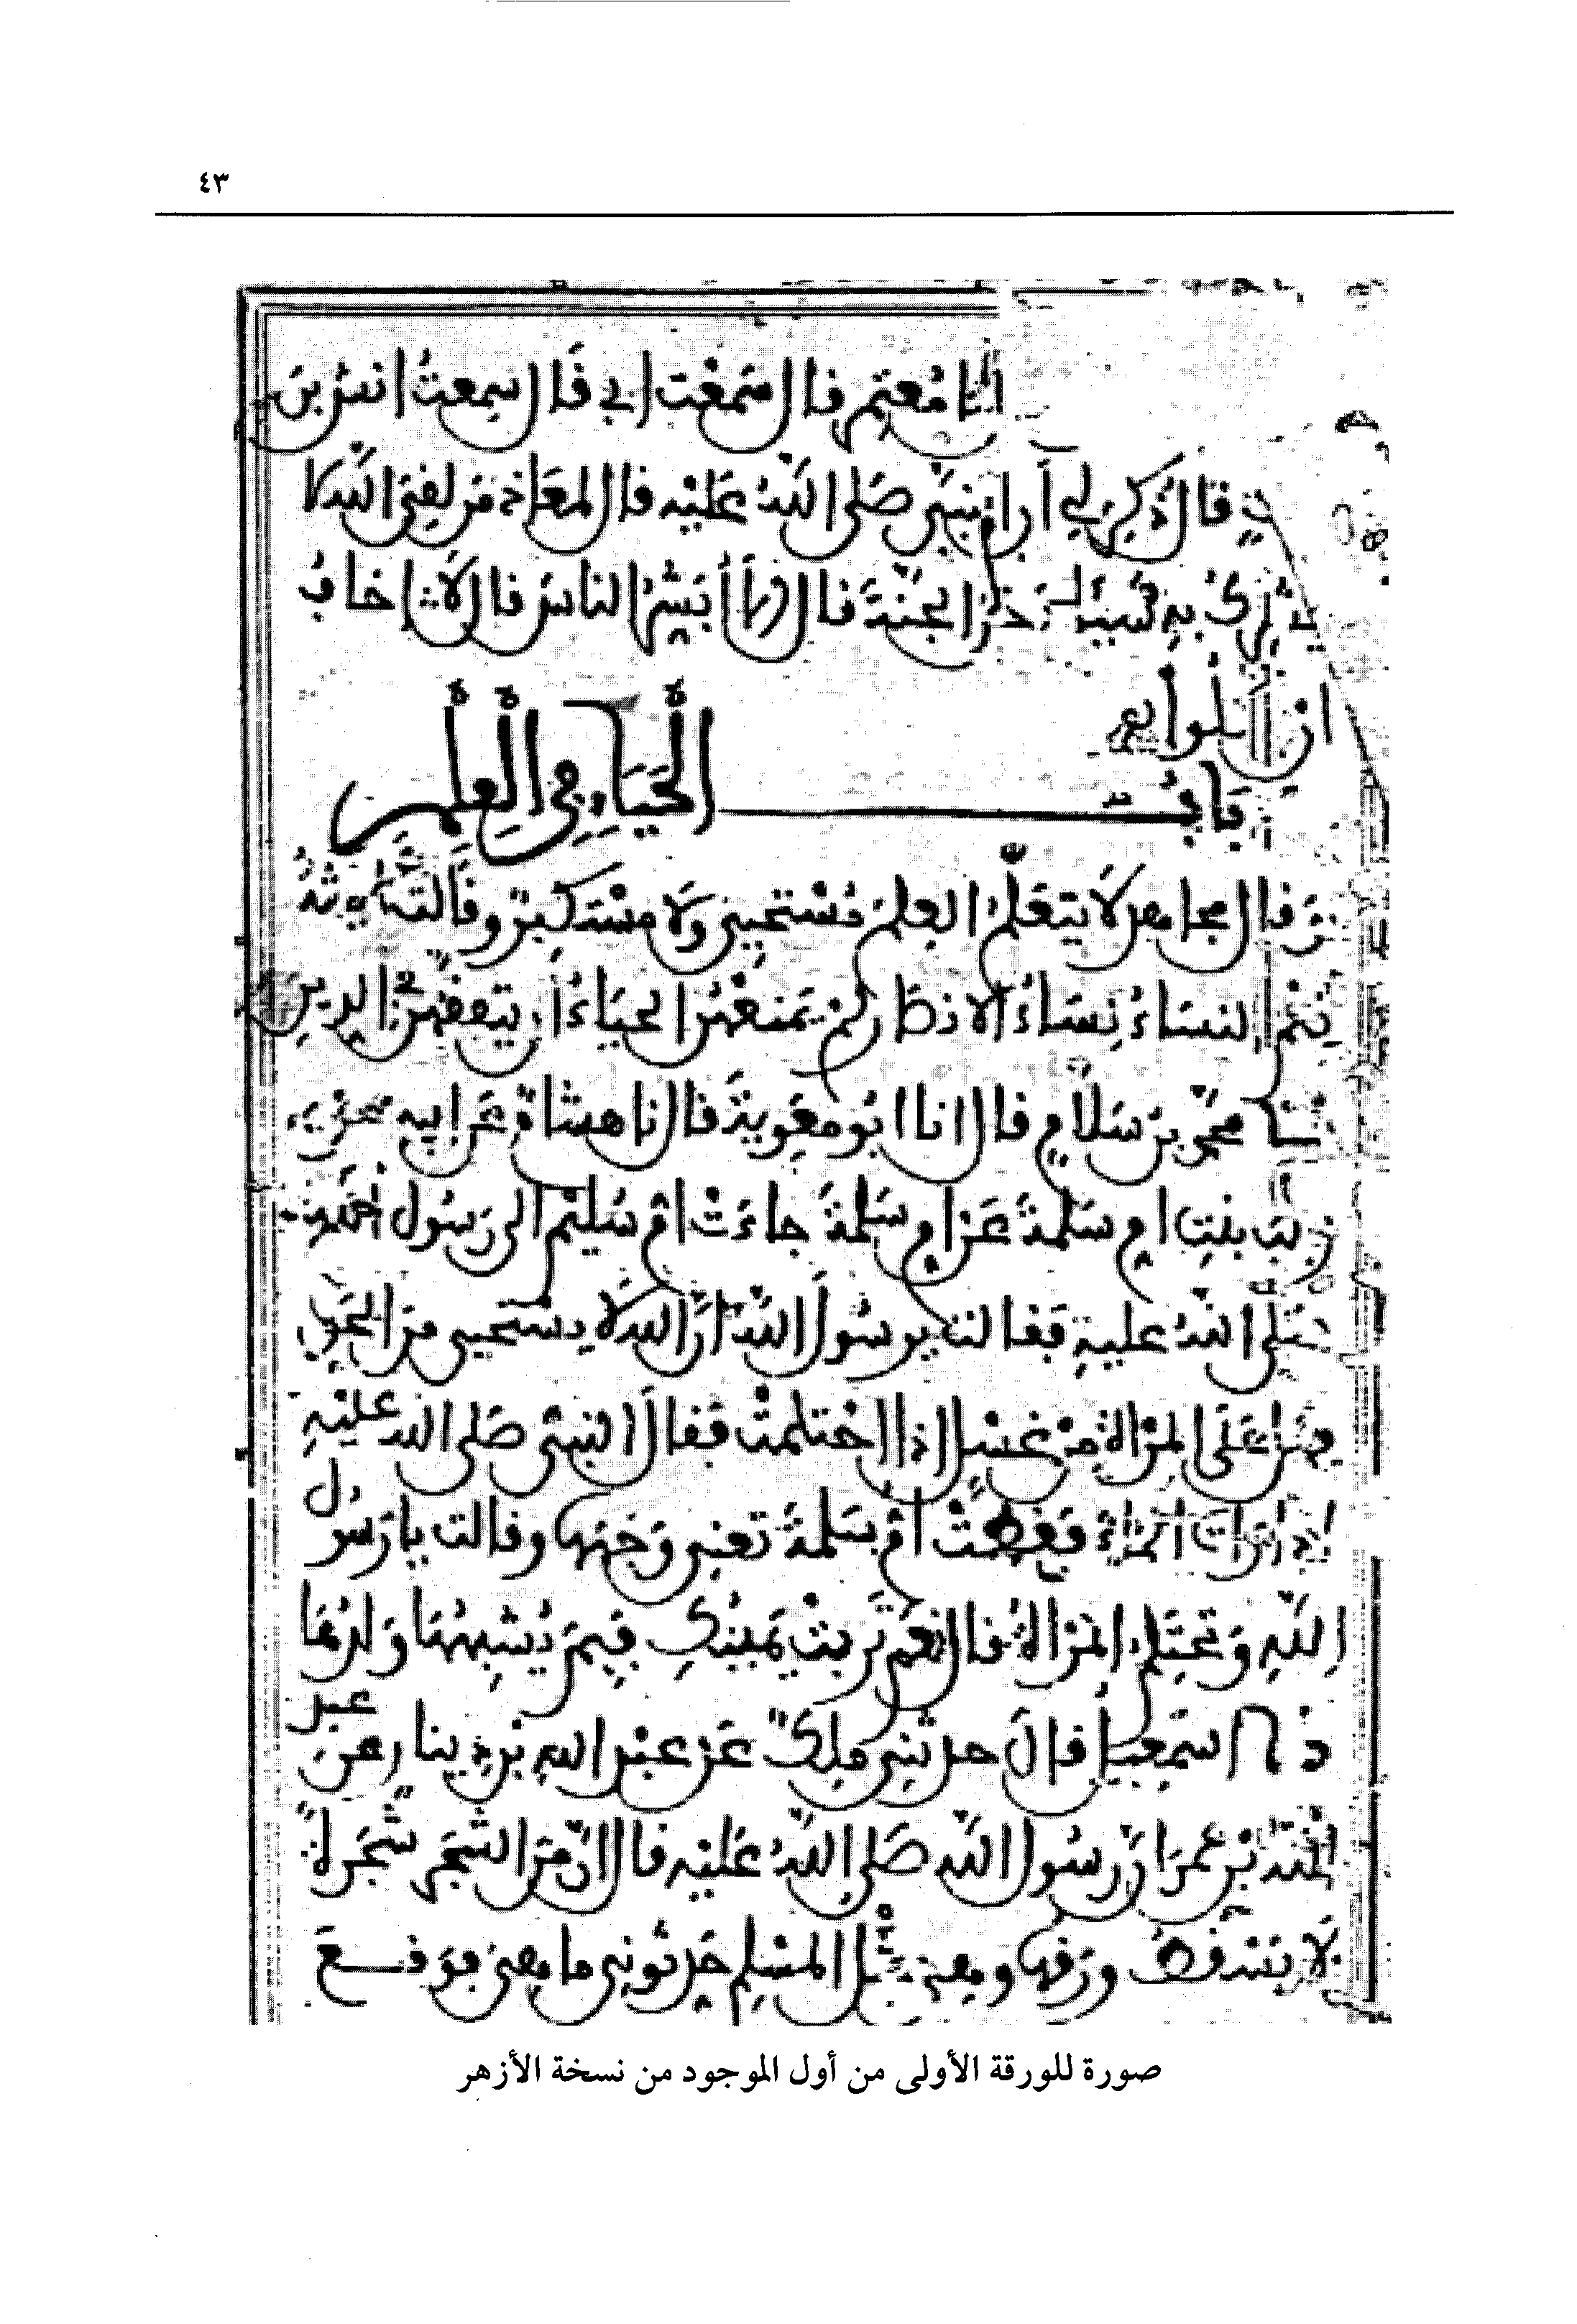 ٤٣
ثنا معتمر قال سمعت ابي قال سمعت انس بن
قال ذكر لي أن النبي صلى الله عليه قال لمعاذ من لقي الله لا
يشرك به شيئا دخل الجنة قال أ أبشر الناس قال لا إني اخاف
ان يتكلوا
باب الحياء في العلم
وقال مجاهد لا يتعلم العلم مستحيي ولا مستكبر وقالت عايشة
نعم النساء نساء الانصار لم يمنعهن الحياء أن يتفقهن في الدين
محمد بن سلام قال انا ابو معوية قال نا هشام عن ابيه عن
زينب بنت ام سلمة عن ام سلمة جاءت ام سليم الى رسول الله
صلى الله عليه فقالت يرسول الله ان الله لا يستحيي من الحق
فهل على المرأة من غسل اذا احتلمت فقال النبي صلى الله عليه
اذا رأت الماء فغطت ام سلمة تعني وجهها وقالت يا رسول
الله وتحتلم المرأة قال نعم تربت يمينك فبم يشبهها ولدها
اسمعيل قال حدثني ملك عن عبد الله بن دينار عن عبد
الله بن عمر ان رسول الله صلى الله عليه قال ان من الشجر شجرة
لا يسقط ورقها وهي مثل المسلم حدثوني ما هي فوقع
صورة للورقة الأولى من أول الموجود من نسخة الأزهر